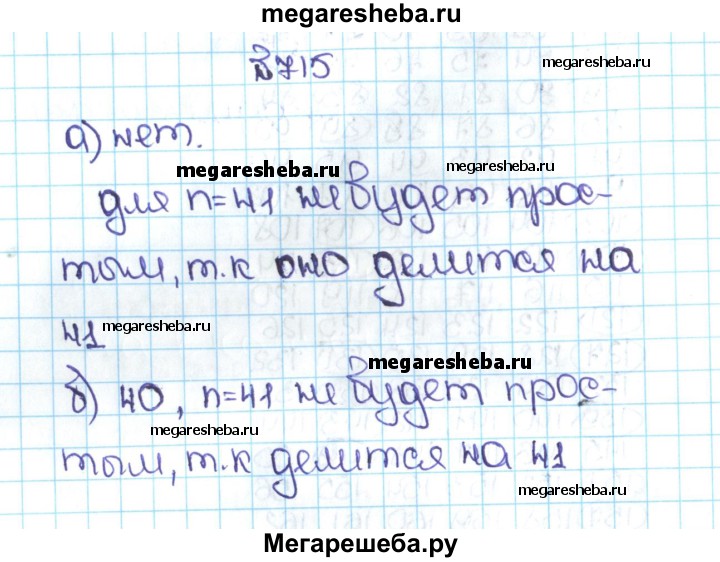 megaresheba.ru
№715
megaresheba.ru
а) нет.
megaresheba.ru
megaresheba.ru
для n=41 не будет прос-
тым, т.к оно делится на
41
megaresheba.ru
megaresheba.ru
б) 40, n=41 не будет прос-
megaresheba.ru
тым, т.к делится на 41
megaresheba.ru
Мегарешеба.ру